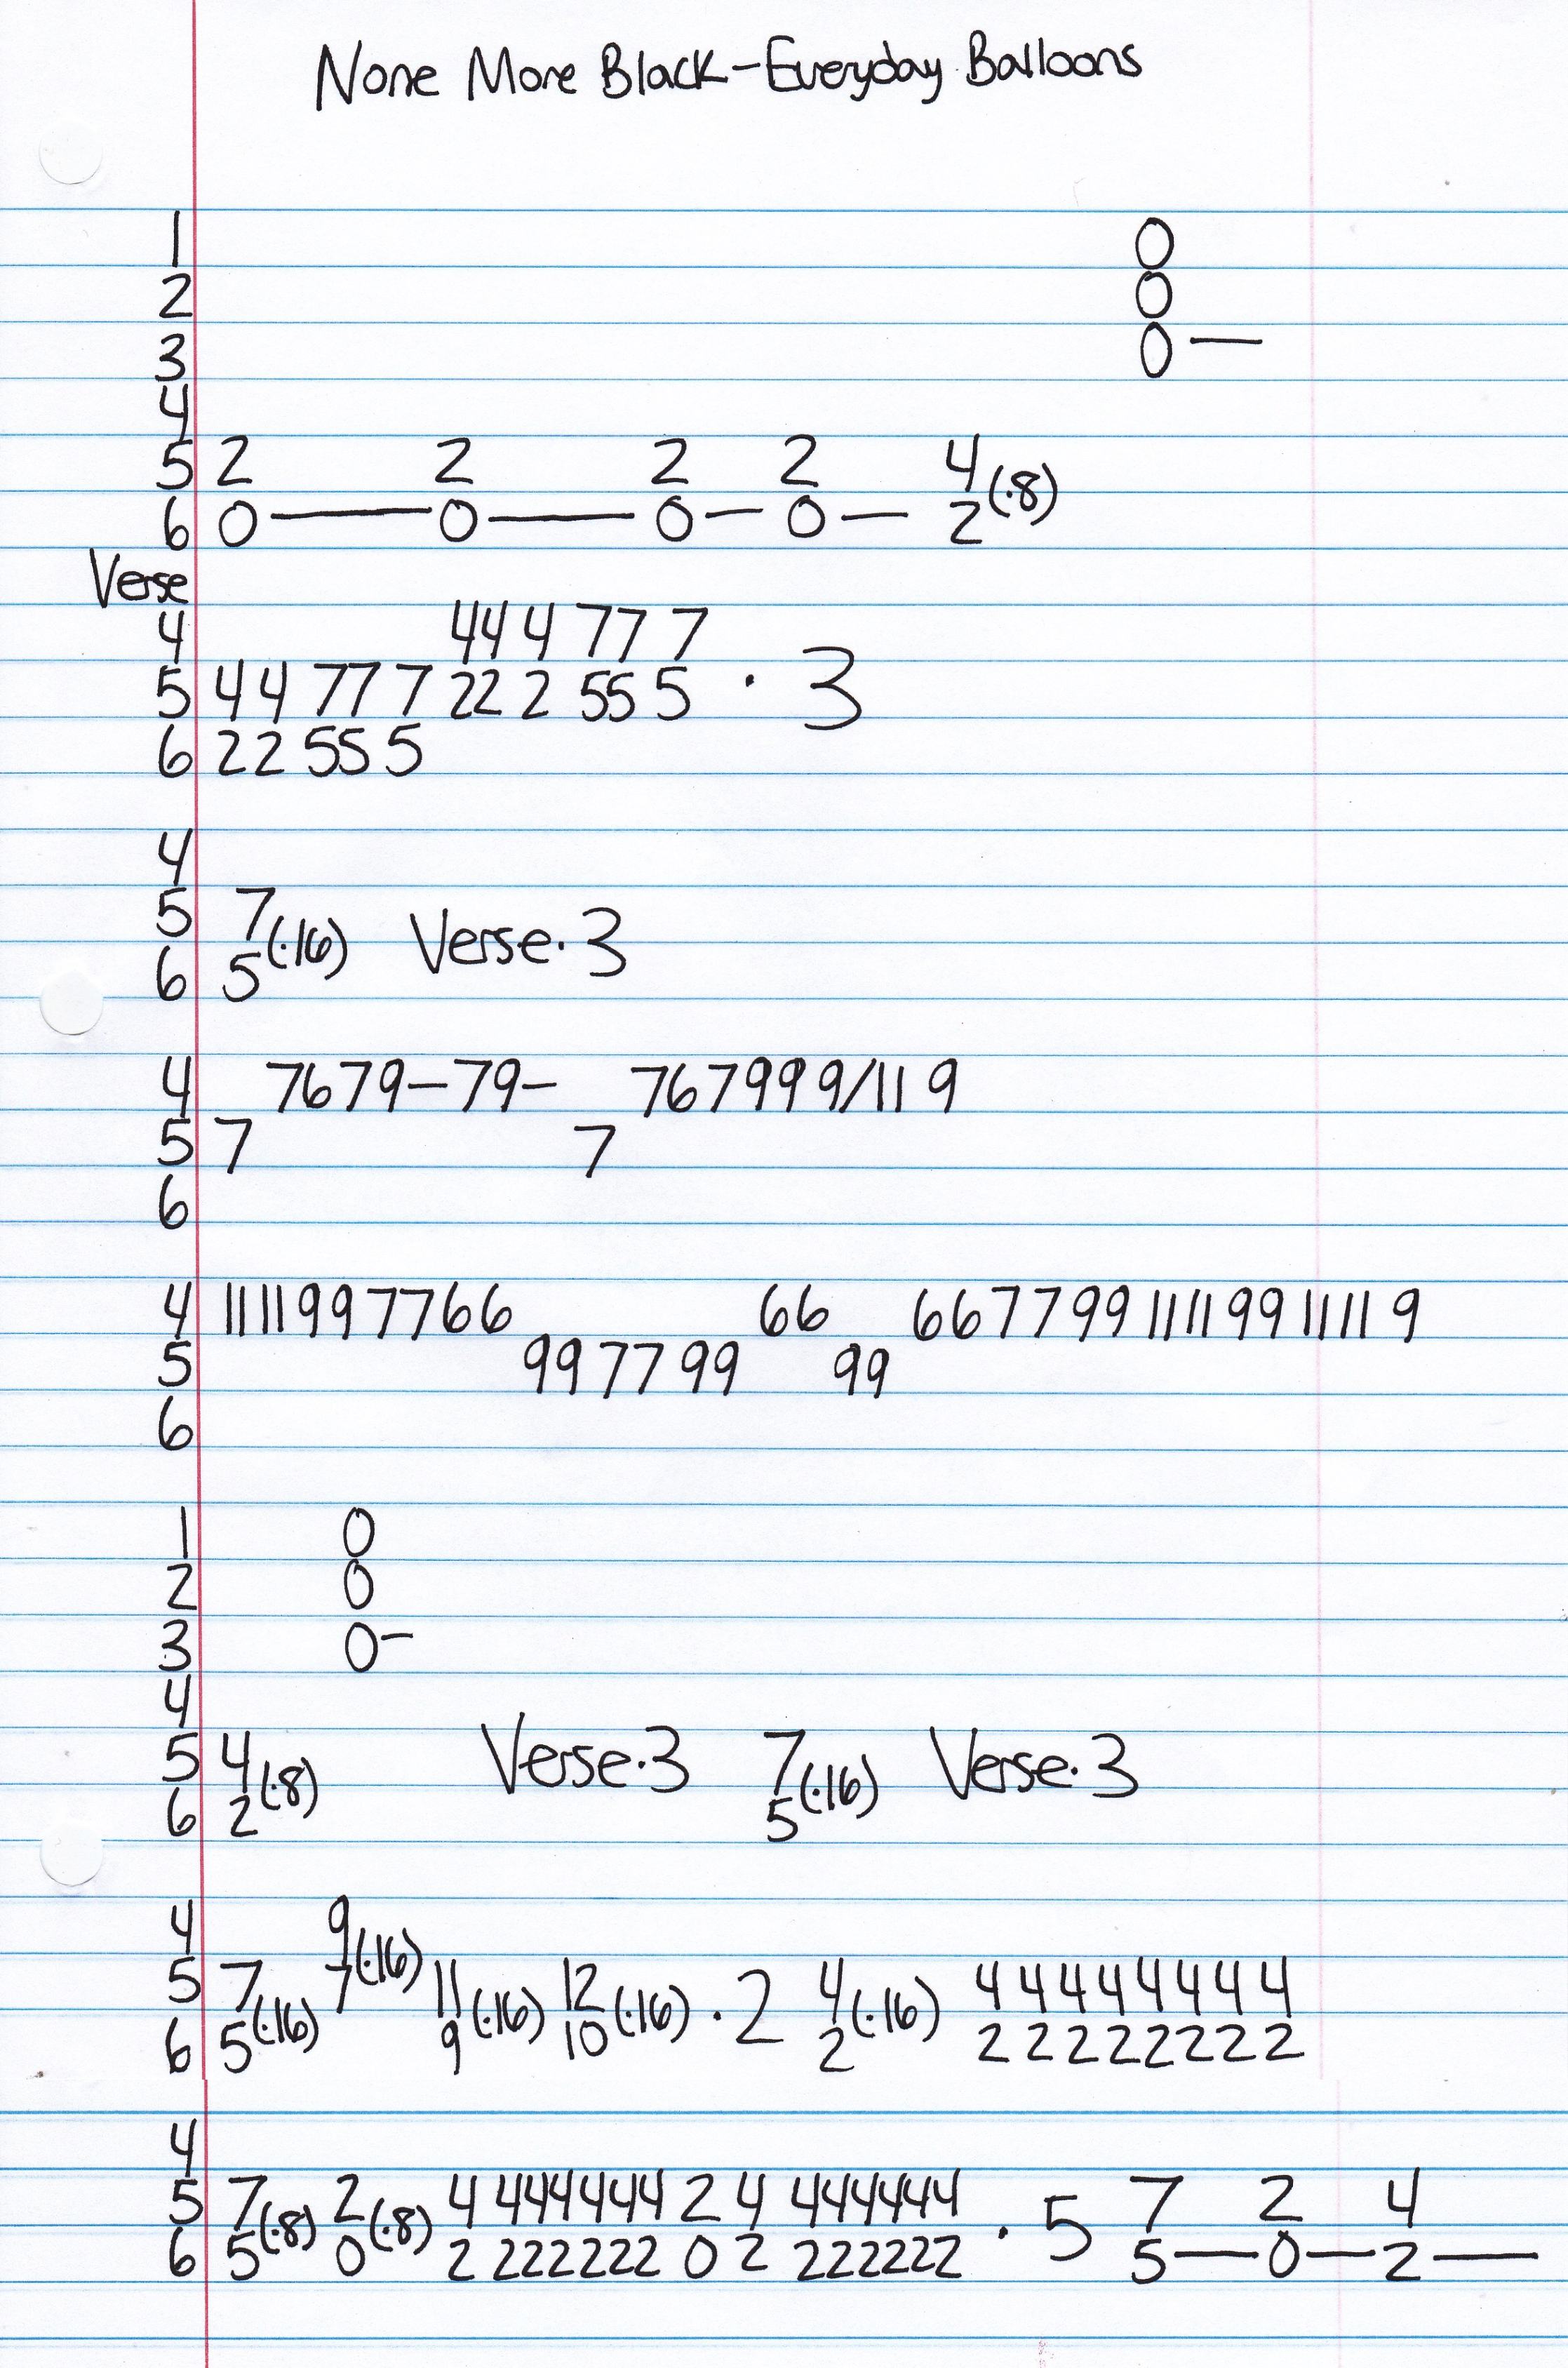 None More Black-Everyday Balloons
1 0
2 0
3 0 —
4
5 2 2 2 2 4
6 0 — 0 — 0 — 0 — 2 (·8)
Verse
4 44 4 77 7
5 44 77 7 22 2 55 5 · 3
6 22 55 5
4
5 7
6 5 (·16) Verse·3
4 7679—79— 767999 9/11 9
5 7 7
6
4 11 11 99 77 66 66 66 77 99 11 11 99 11 11 9
5 99 77 99 99
6
1 0
2 0
3 0 —
4
5 4 7
6 2 (·8) Verse·3 5 (·16) Verse·3
4 9
5 7 7 (·16) 11 12 4 4 4 4 4 4 4 4 4
6 5 (·16) 9 (·16) 10 (·16) · 2 2 (·16) 2 2 2 2 2 2 2 2
4
5 7 2 4 444444 2 4 444444 7 2 4
6 5 (·8) 0 (·8) 2 222222 0 2 222222 · 5 5 — 0 — 2 —